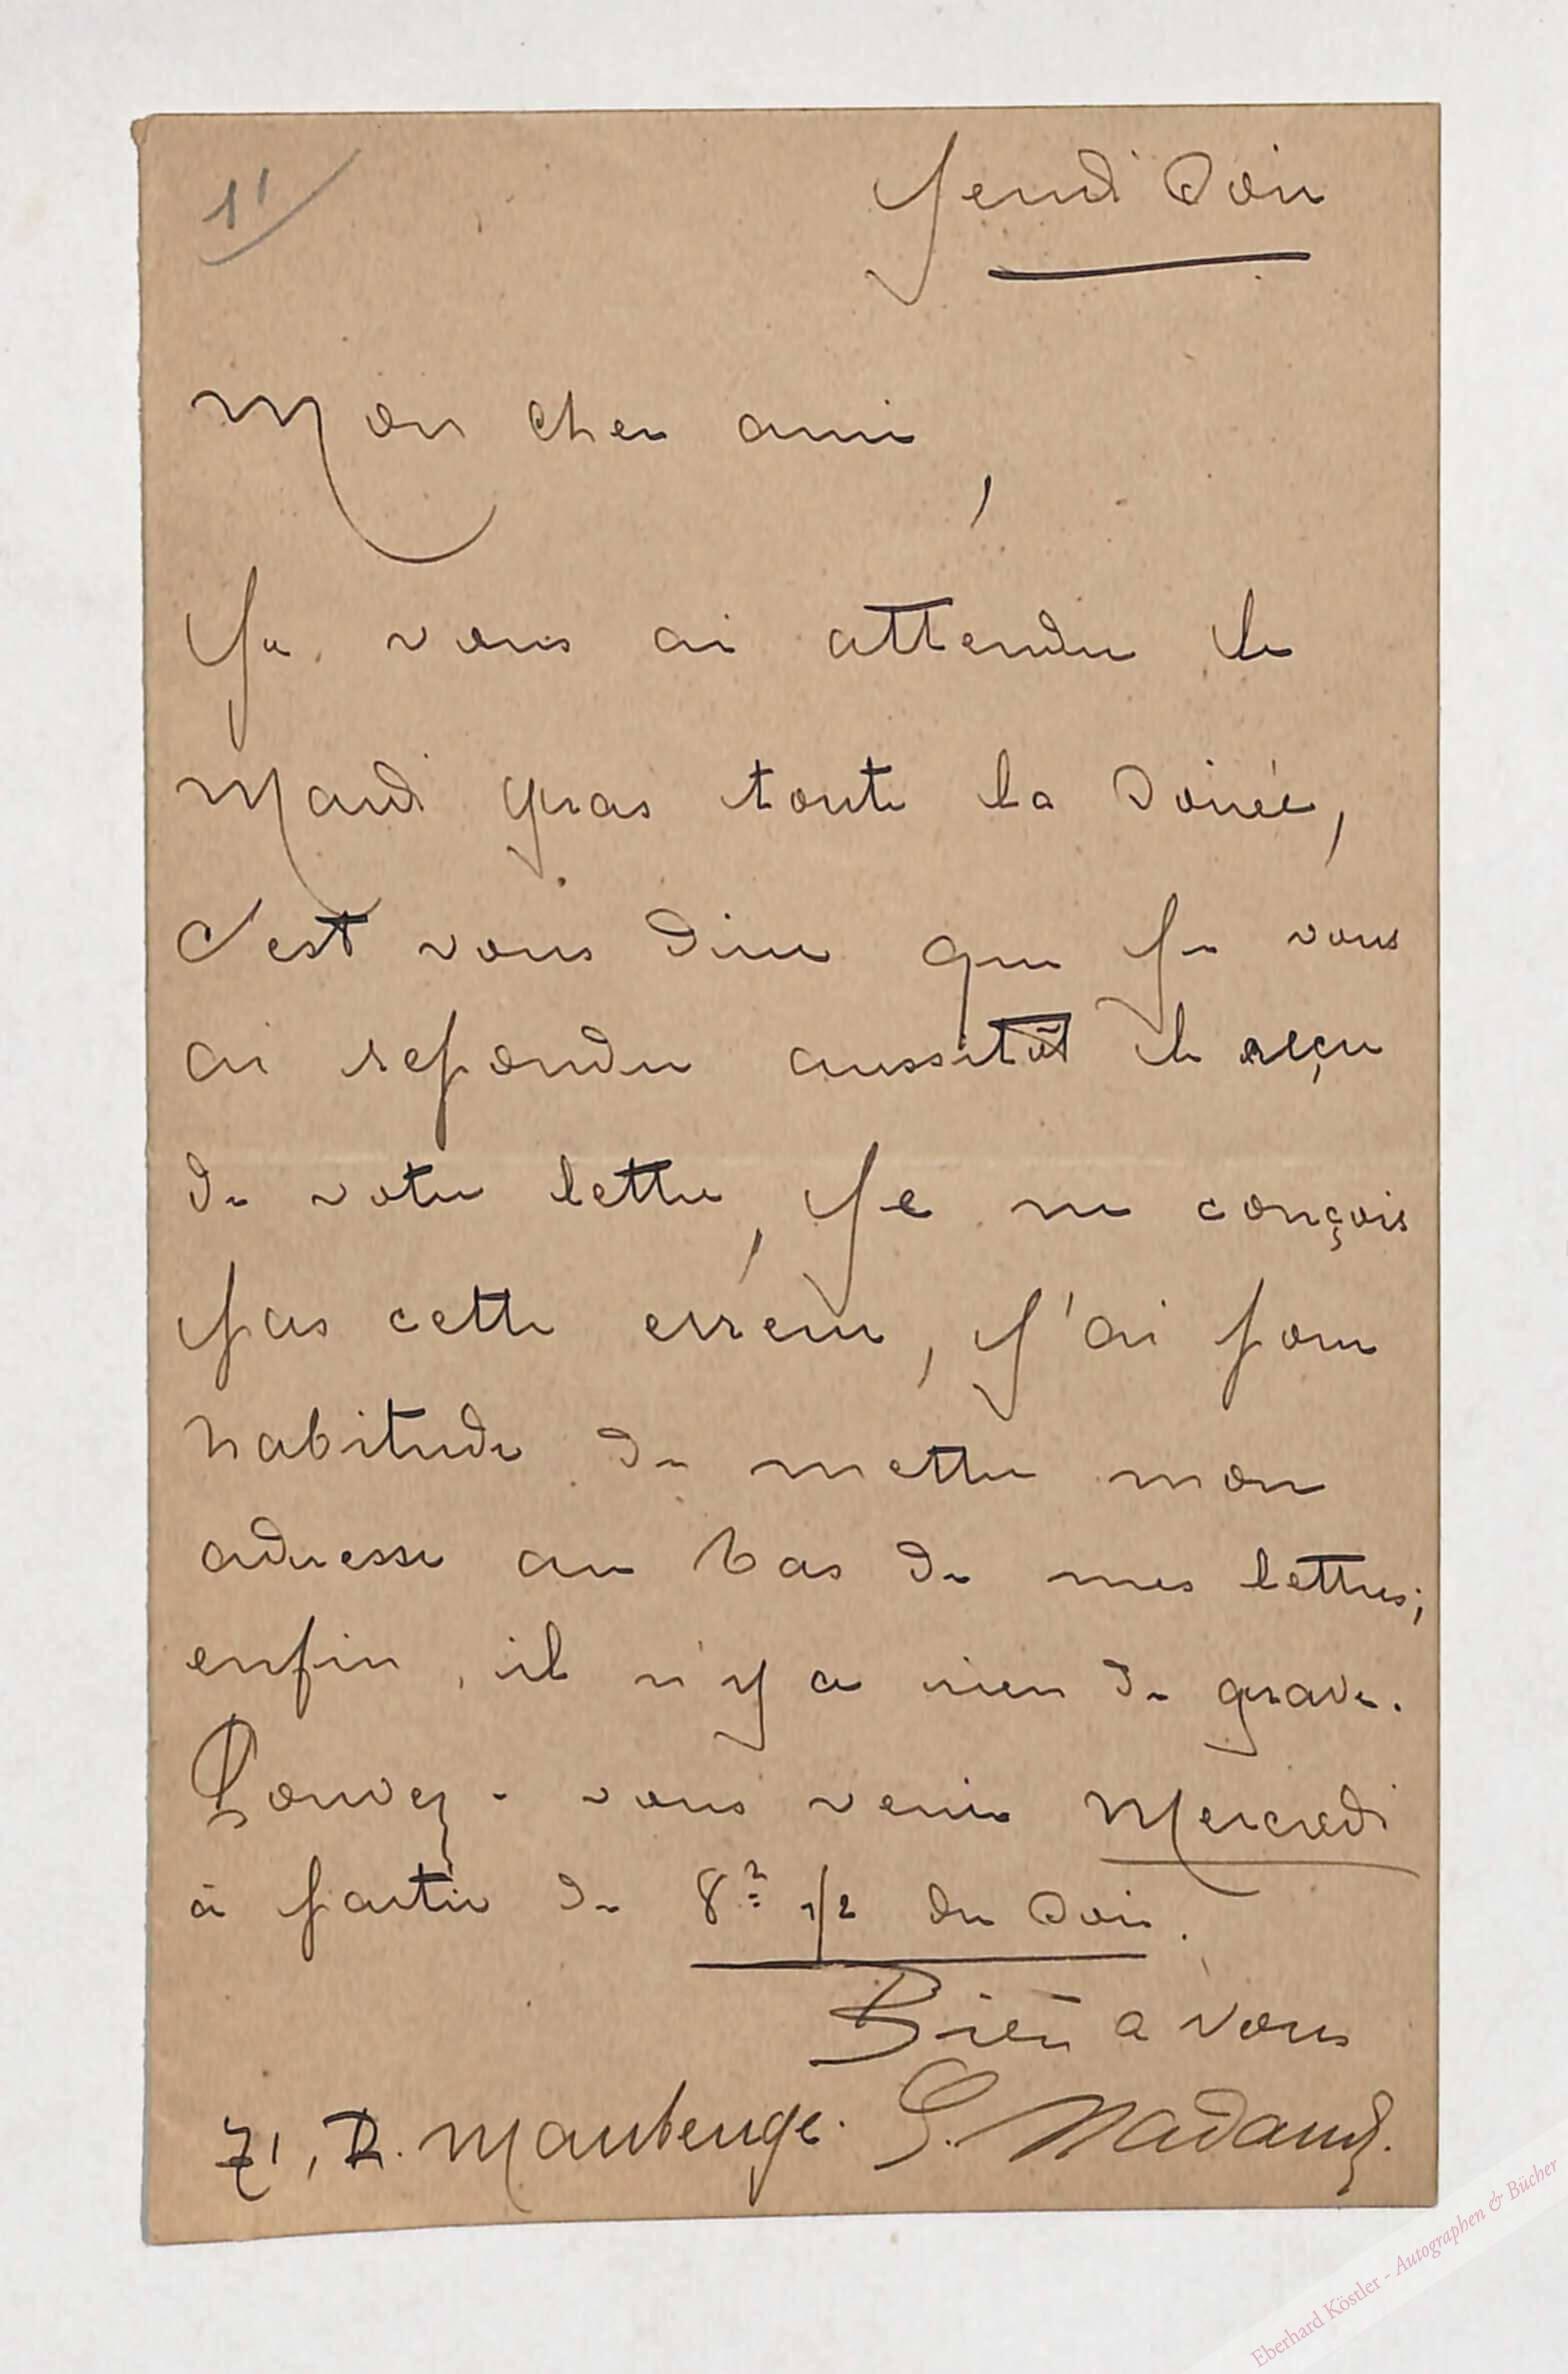 11
Jeudi Soir
Mon cher ami,
Je vous ai attendu le
Mardi gras toute la soirée,
c'est vous dire que je vous
ai repondu aussitôt le reçu
de votre lettre, je ne conçois
pas cette erreur, j'ai pour
habitude de mettre mon
adresse au bas de mes lettres;
enfin, il n'y a rien de grave.
Pouvez-vous venir Mercredi
à partir de 8h 1/2 du soir.
Bien a vous
71, R. Maubeuge. G. Nadaud.
Eberhard Köstler - Autographen & Bücher